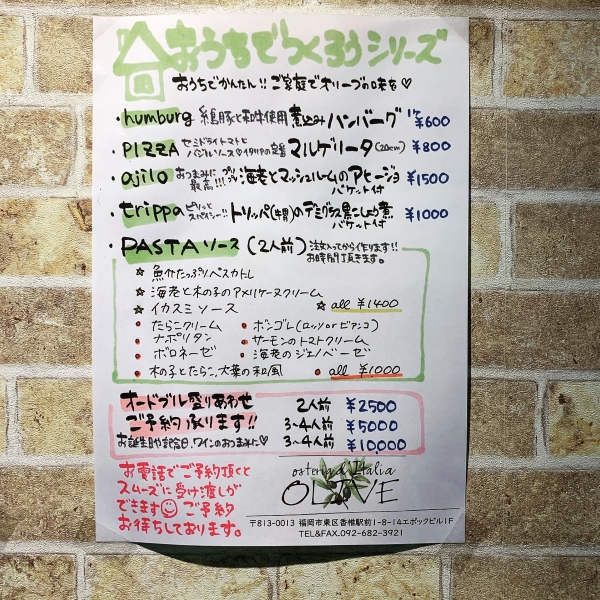 おうちでつくろうシリーズ
おうちでかんたん!! ご家庭でオリーブの味を♡
・humburg 糸島豚と和牛使用 煮込みハンバーグ 1ケ¥600
・PIZZA セミドライトマトとバジルソース♡イタリアの定番 マルゲリータ(20cm) ¥800
・ajilo おつまみに最高!!! プリプリ海老とマッシュルームのアヒージョ バケット付 ¥1500
・trippa ピリッとスパイシー!! トリッパ(牛胃)のデミグラス黒こしょう煮 バケット付 ¥1000
・PASTAソース(2人前) 注文入ってから作ります!! お時間頂きます。
☆ 魚介たっぷりペスカトレ
☆ 海老と木の子のアメリケーヌクリーム
☆ イカスミソース ☆ all ¥1400
・たらこクリーム ・ボンゴレ(ロッソorビアンコ)
・ナポリタン ・サーモンのトマトクリーム
・ボロネーゼ ・海老のジェノベーゼ
・木の子とたらこ、大葉の和風 ・all ¥1000
オードブル盛りあわせ 2人前 ¥2500
ご予約承ります!! 3~4人前 ¥5000
お誕生日や記念日、ワインのおつまみに♡ 3~4人前 ¥10,000
お電話でご予約頂くと
スムーズに受け渡しが
できます ご予約
お待ちしております。
osteria d'Italia
OLIVE
〒813-0013 福岡市東区香椎駅前1-8-14エポックビル1F
TEL&FAX.092-682-3921